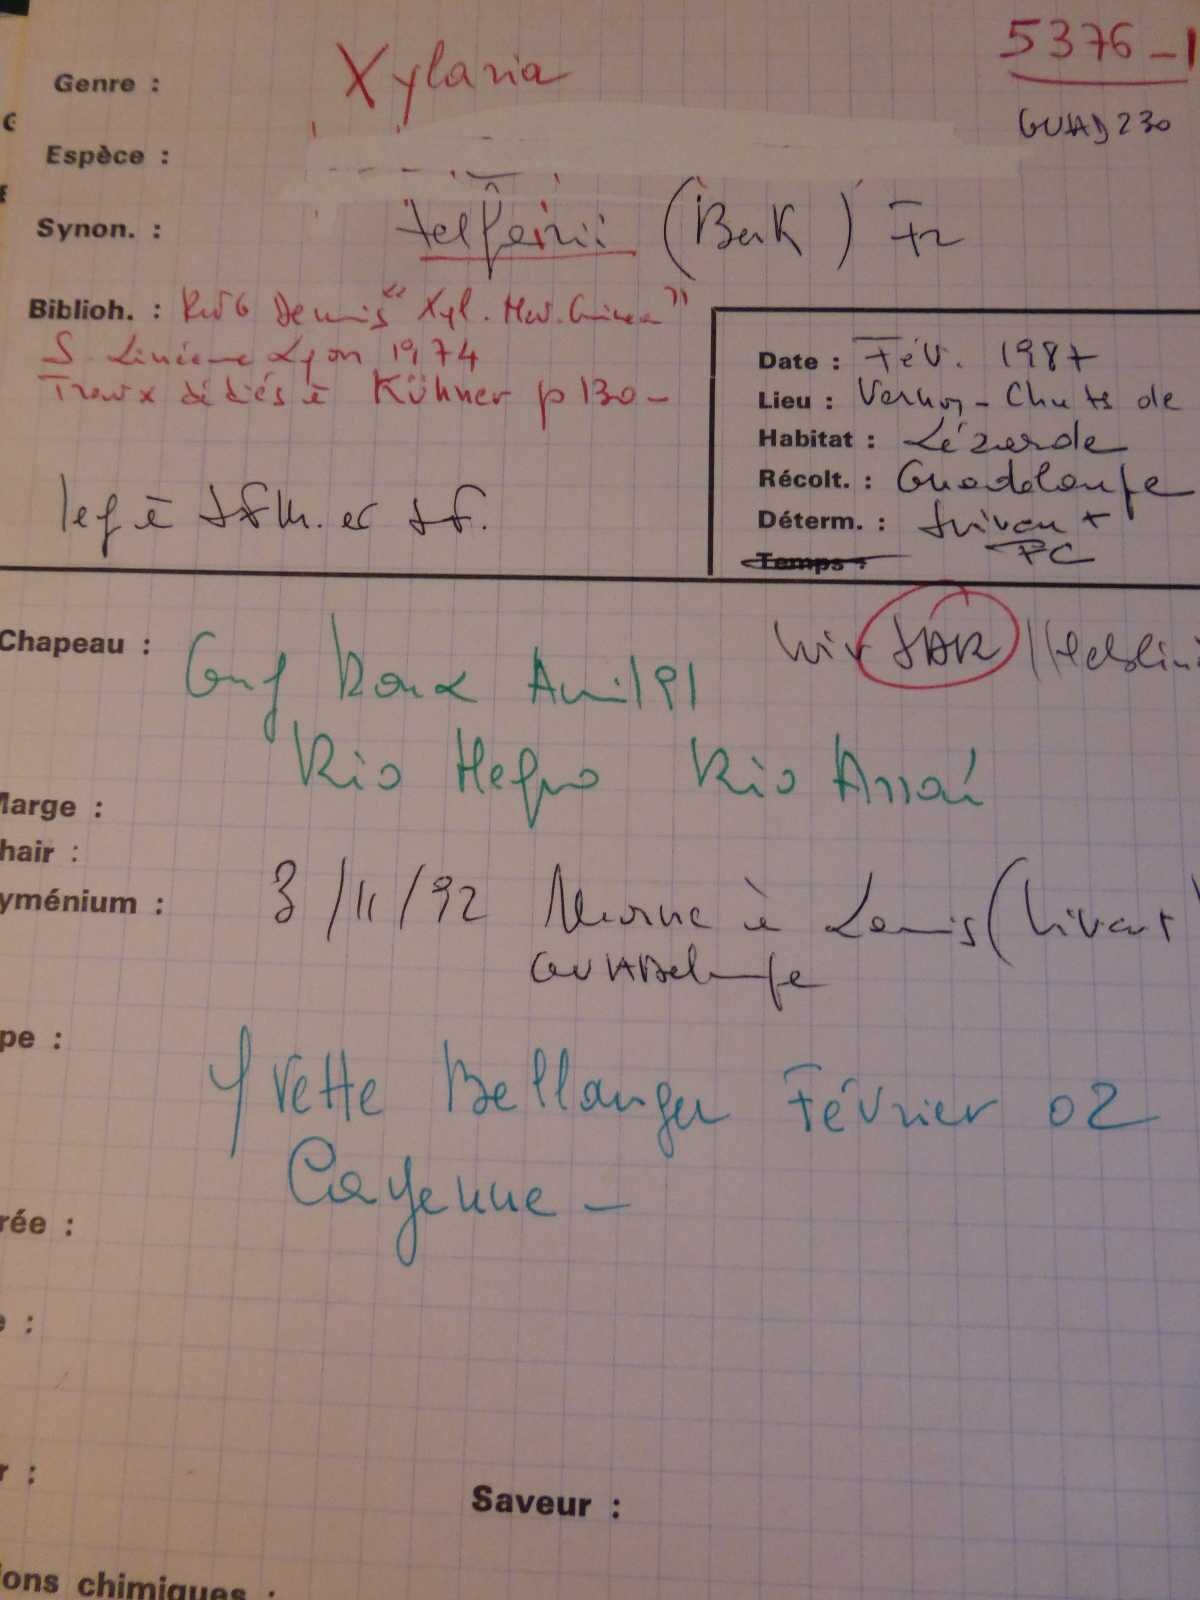 5376-1
Genre : Xylaria
GUAD 230
Espèce :
Synon. : telfairii (Berk) Fr
Biblioh. : Dennis " Xyl.
S. Linéenne Lyon 1974
Travx dédiés à Kühner p 130 -
Date : Fév. 1987
Lieu : Vernou - Chuts de
Habitat : Lézarde
Récolt. : Guadeloupe
Déterm. :
FC
Temps :
leg à JFM. et JF.
Chapeau : JAR
Guy Roux Avril 91
Rio Negro Rio
Marge :
hair :
yménium : 3/11/92 Morne à Louis (Vivant
GUADeloupe
pe :
Yvette Bellanger Février 02
Cayenne -
rée :
e :
r :
Saveur :
ions chimiques :